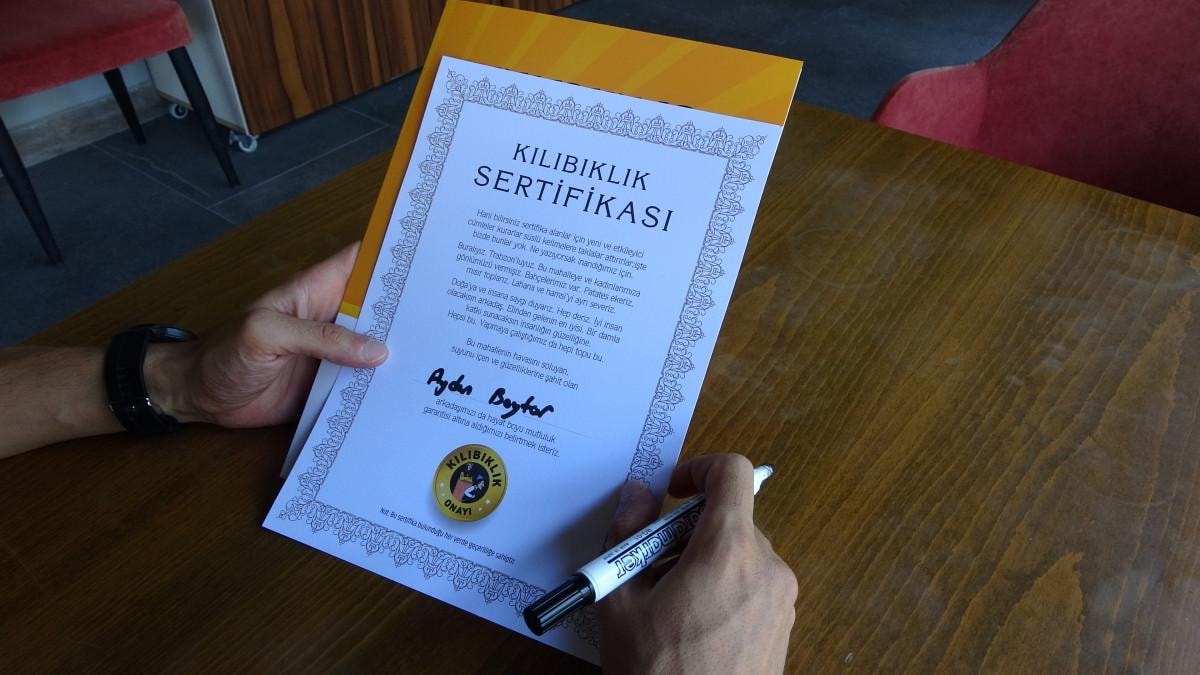 KILIBIKLIK
SERTİFİKASI
Hani bilirsiniz sertifika alanlar için yeni ve etkileyici
cümleler kurarlar süslü kelimelere taklalar attırırlar;işte
bizde bunlar yok. Ne yazıyorsak inandığımız için.
Buralıyız. Trabzon'luyuz. Bu mahalleye ve kadınlarımıza
gönlümüzü vermişiz. Bahçelerimiz var. Patates ekeriz,
mısır toplarız. Lahana ve hamsi'yi ayrı severiz.
Doğa'ya ve insana saygı duyarız. Hep deriz. İyi insan
olacaksın arkadaş. Elinden gelenin en iyisi. Bir damla
katkı sunacaksın insanlığın güzelliğine.
Hepsi bu. Yapmaya çalıştığımız da hepi topu bu.
Bu mahallenin havasını soluyan,
suyunu içen ve güzelliklerine şahit olan
Aydın Baytar
arkadaşımızı da hayat boyu mutluluk
garantisi altına aldığımızı belirtmek isteriz.
KILIBIKLIK
ONAYI
Not: Bu sertifika bulunduğu her yerde geçerliliğe sahiptir.